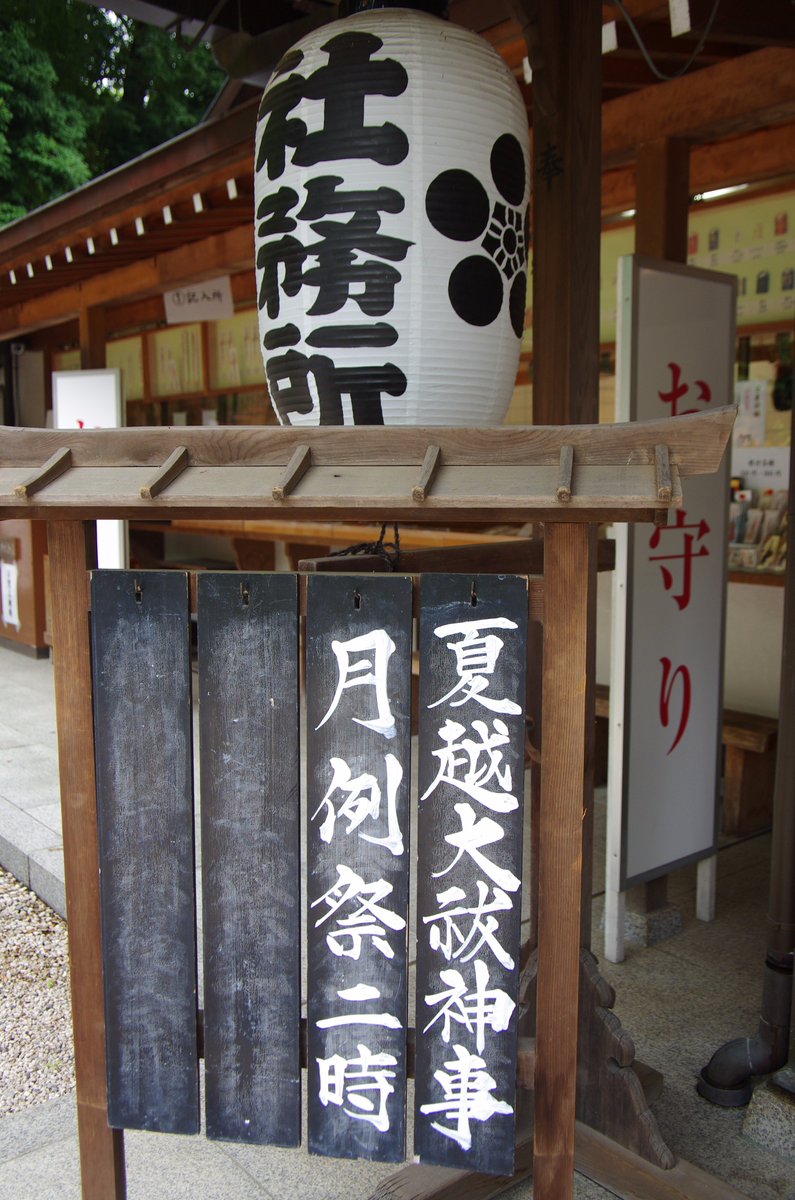 社務所
奉
①記入所
お守り
夏越大祓神事
月例祭二時